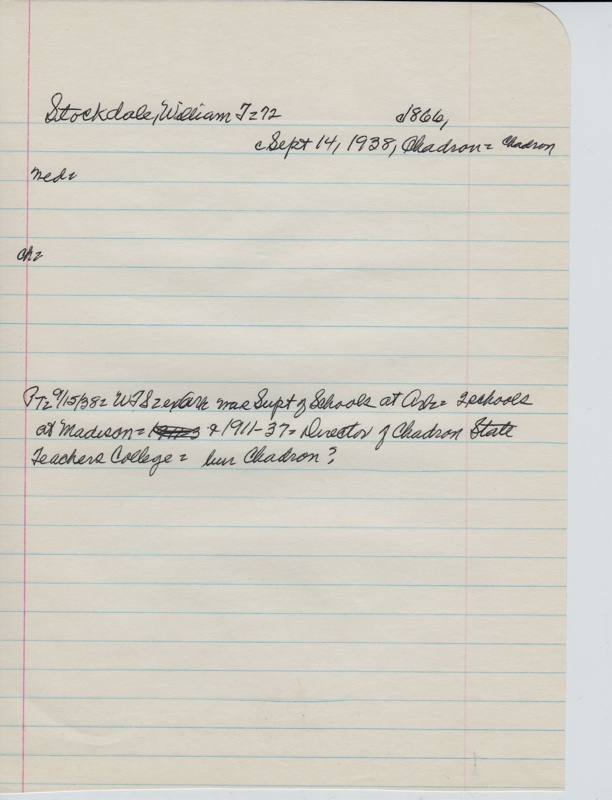 Stockdale, William T = 72 d1866,
cSept 14, 1938, Chadron = Chadron
med=
ch=
PT= 9/15/38 = WTS = was Supt of Schools at = schools
at Madison = & 1911-37 = Director of Chadron State
Teachers College = bur Chadron?